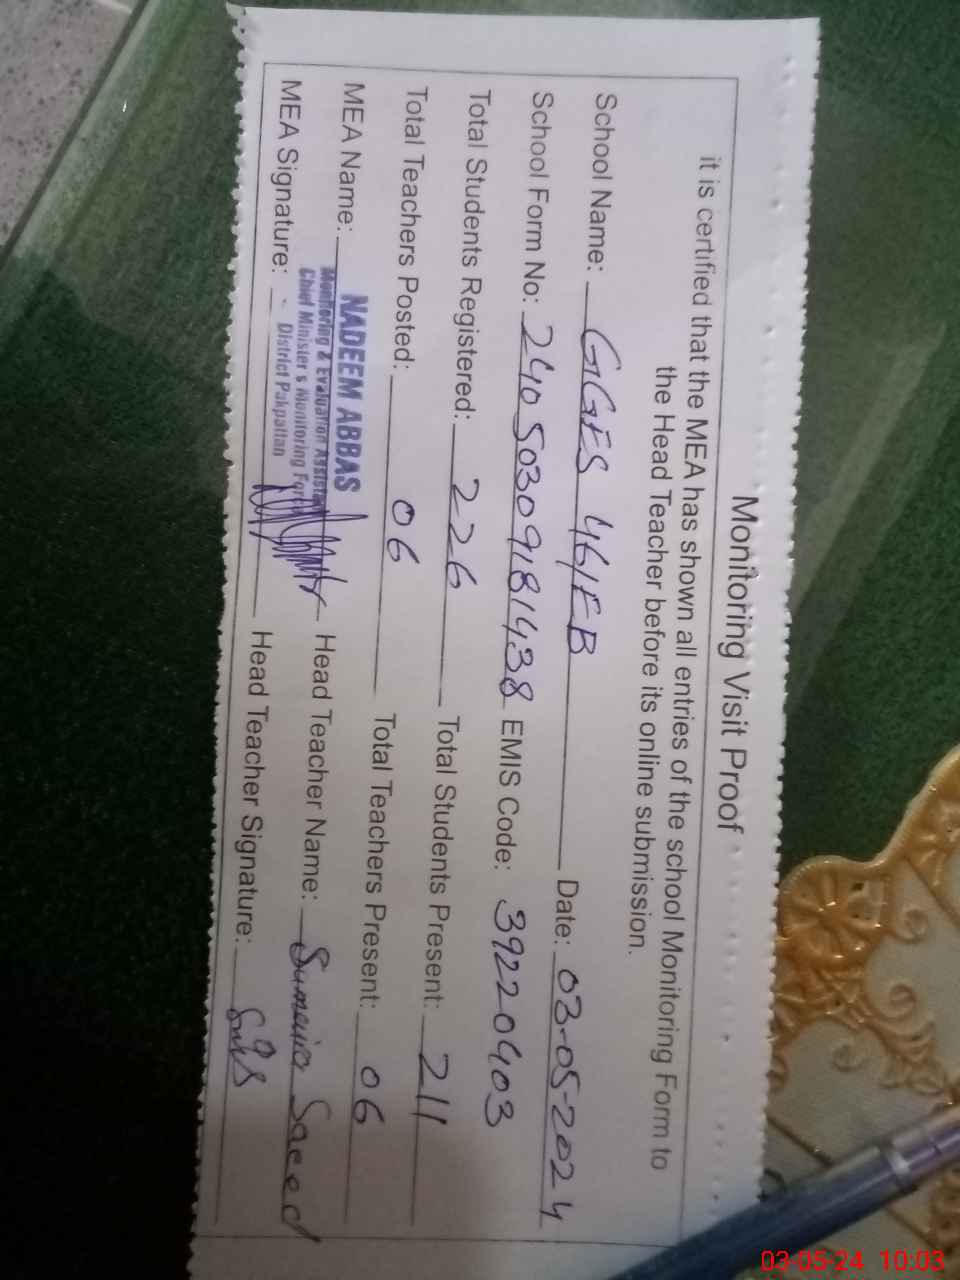 Monitoring Visit Proof
it is certified that the MEA has shown all entries of the school Monitoring Form to
the Head Teacher before its online submission.
School Name: GGES 46/EB Date: 03-05-2024
School Form No: 24050309181438 EMIS Code: 39220403
Total Students Registered: 226 Total Students Present: 211
Total Teachers Posted: 06 Total Teachers Present: 06
MEA Name: NADEEM ABBAS Head Teacher Name: Sumaira Saeed
Monitoring & Evaluation Assistant
Chief Minister's Monitoring Force
District Pakpattan
MEA Signature: Head Teacher Signature:
03-05-24 10:03